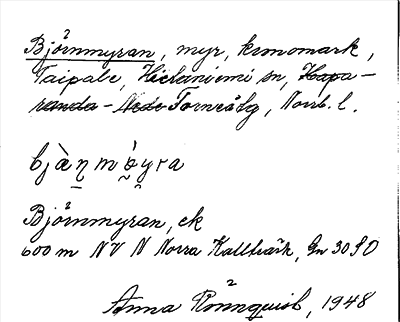 Björnmyran, myr, kronomark,
Taipale, Hietaniemi sn, Hapa-
randa - Nede Torneålg, Norrb. l.
bjàn̠mò̰y̭ra
Björnmyran, ek
600 m NV N Norra Kallträsk, Gn 30 SO
Anna Rönnquist, 1948